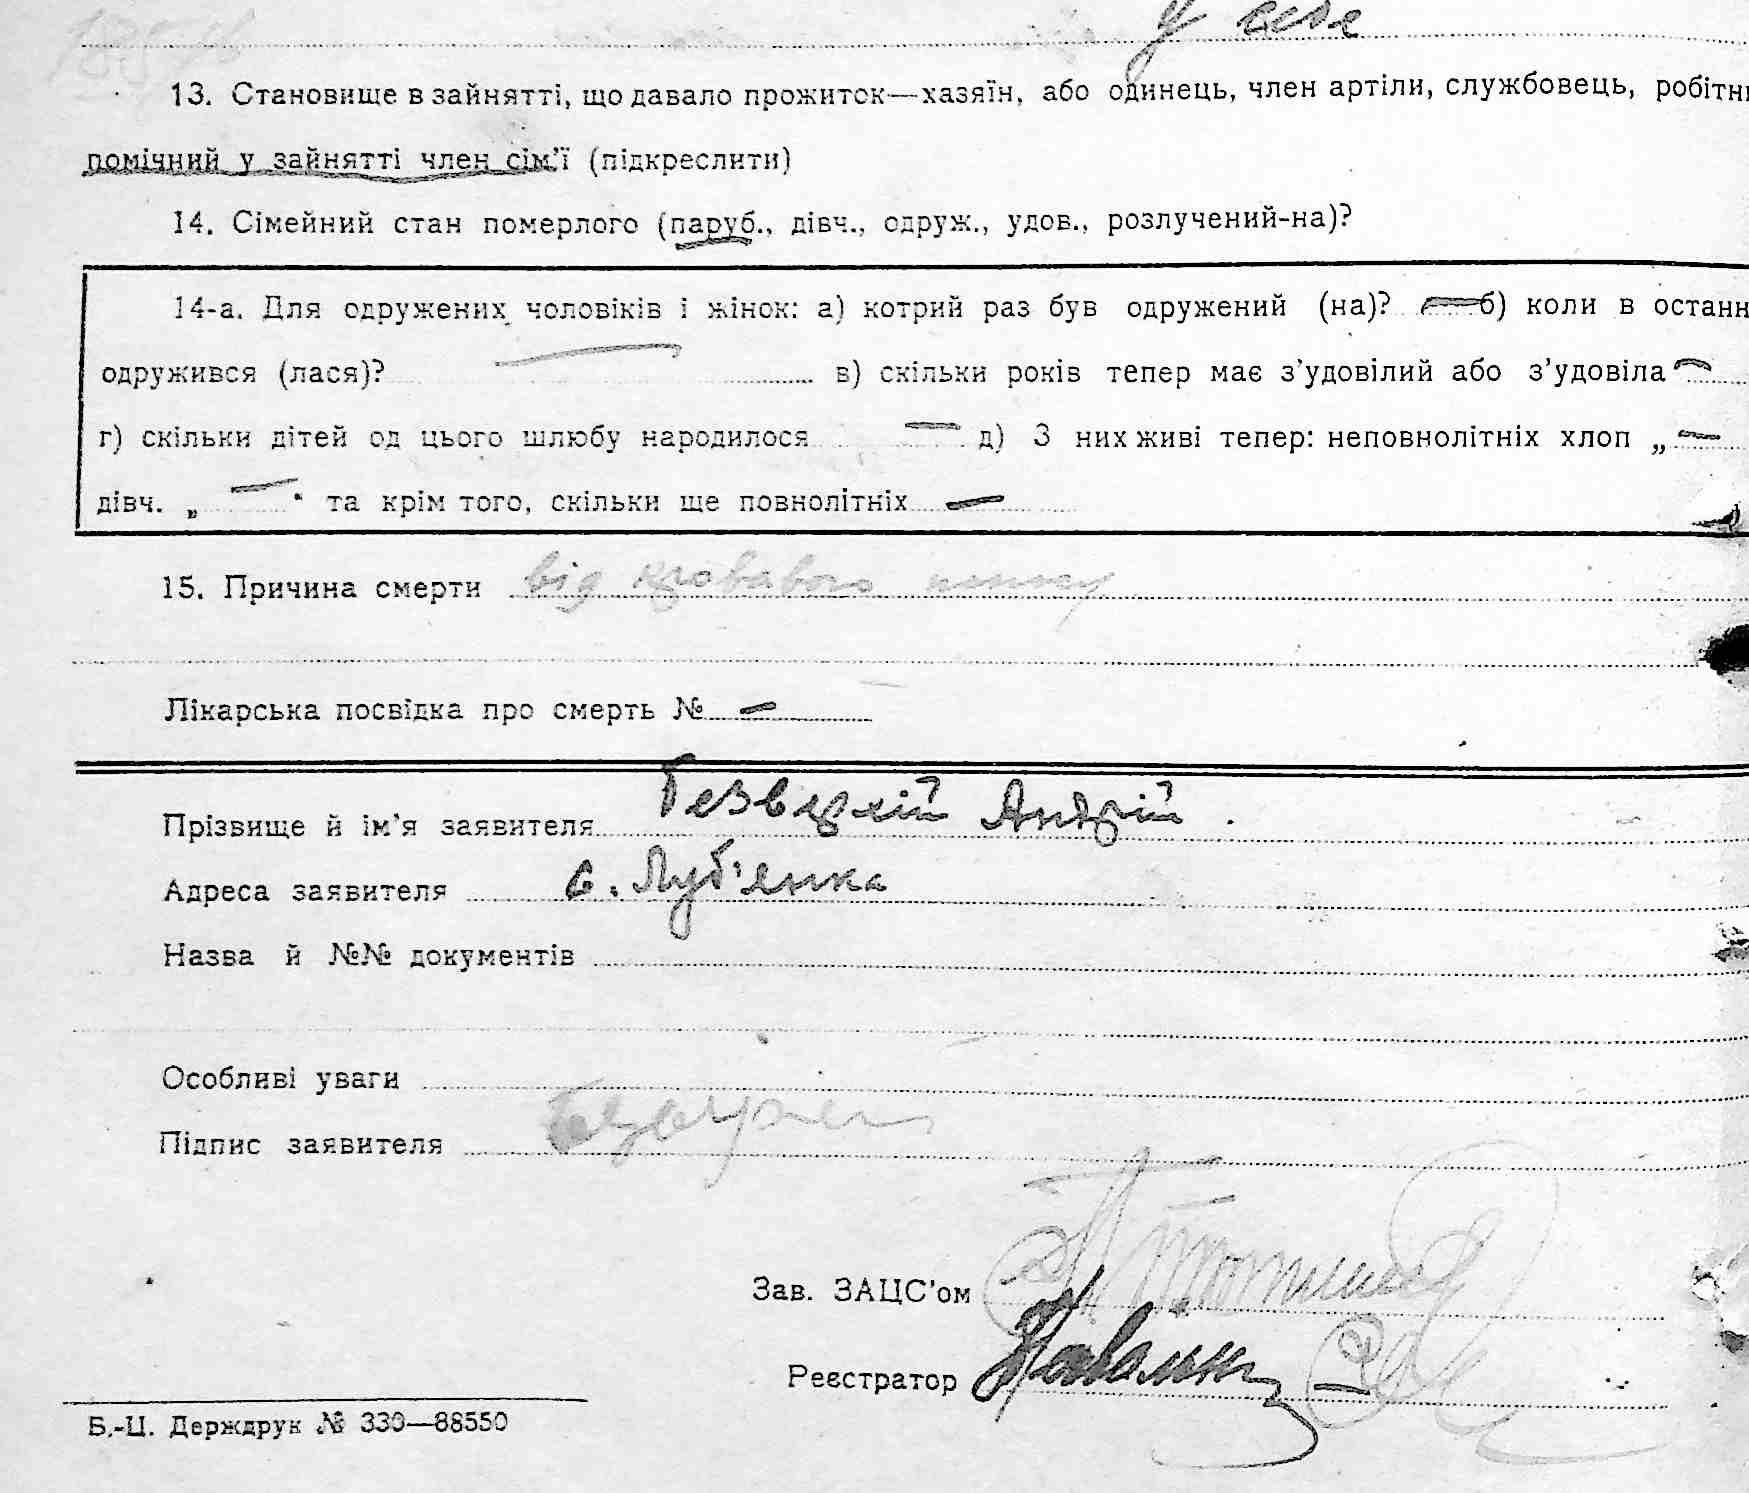 у селі
13. Становище в зайнятті, що давало прожиток—хазяїн, або одинець, член артіли, службовець, робітни
помічний у зайнятті член сім'ї (підкреслити)
14. Сімейний стан померлого (паруб., дівч., одруж., удов., розлучений-на)?
14-а. Для одружених чоловіків і жінок: а) котрий раз був одружений (на)? — б) коли в останн
одружився (лася)? — в) скільки років тепер має з'удовілий або з'удовіла —
г) скільки дітей од цього шлюбу народилося — д) З них живі тепер: неповнолітніх хлоп „ —
дівч. „ — " та крім того, скільки ще повнолітніх —
15. Причина смерти від кровавого
Лікарська посвідка про смерть № —
Прізвище й ім'я заявителя Андрій
Адреса заявителя с. Луб'янка
Назва й №№ документів
Особливі уваги
Підпис заявителя
Зав. ЗАЦС'ом
Реєстратор
Б.-Ц. Держдрук № 330—88550